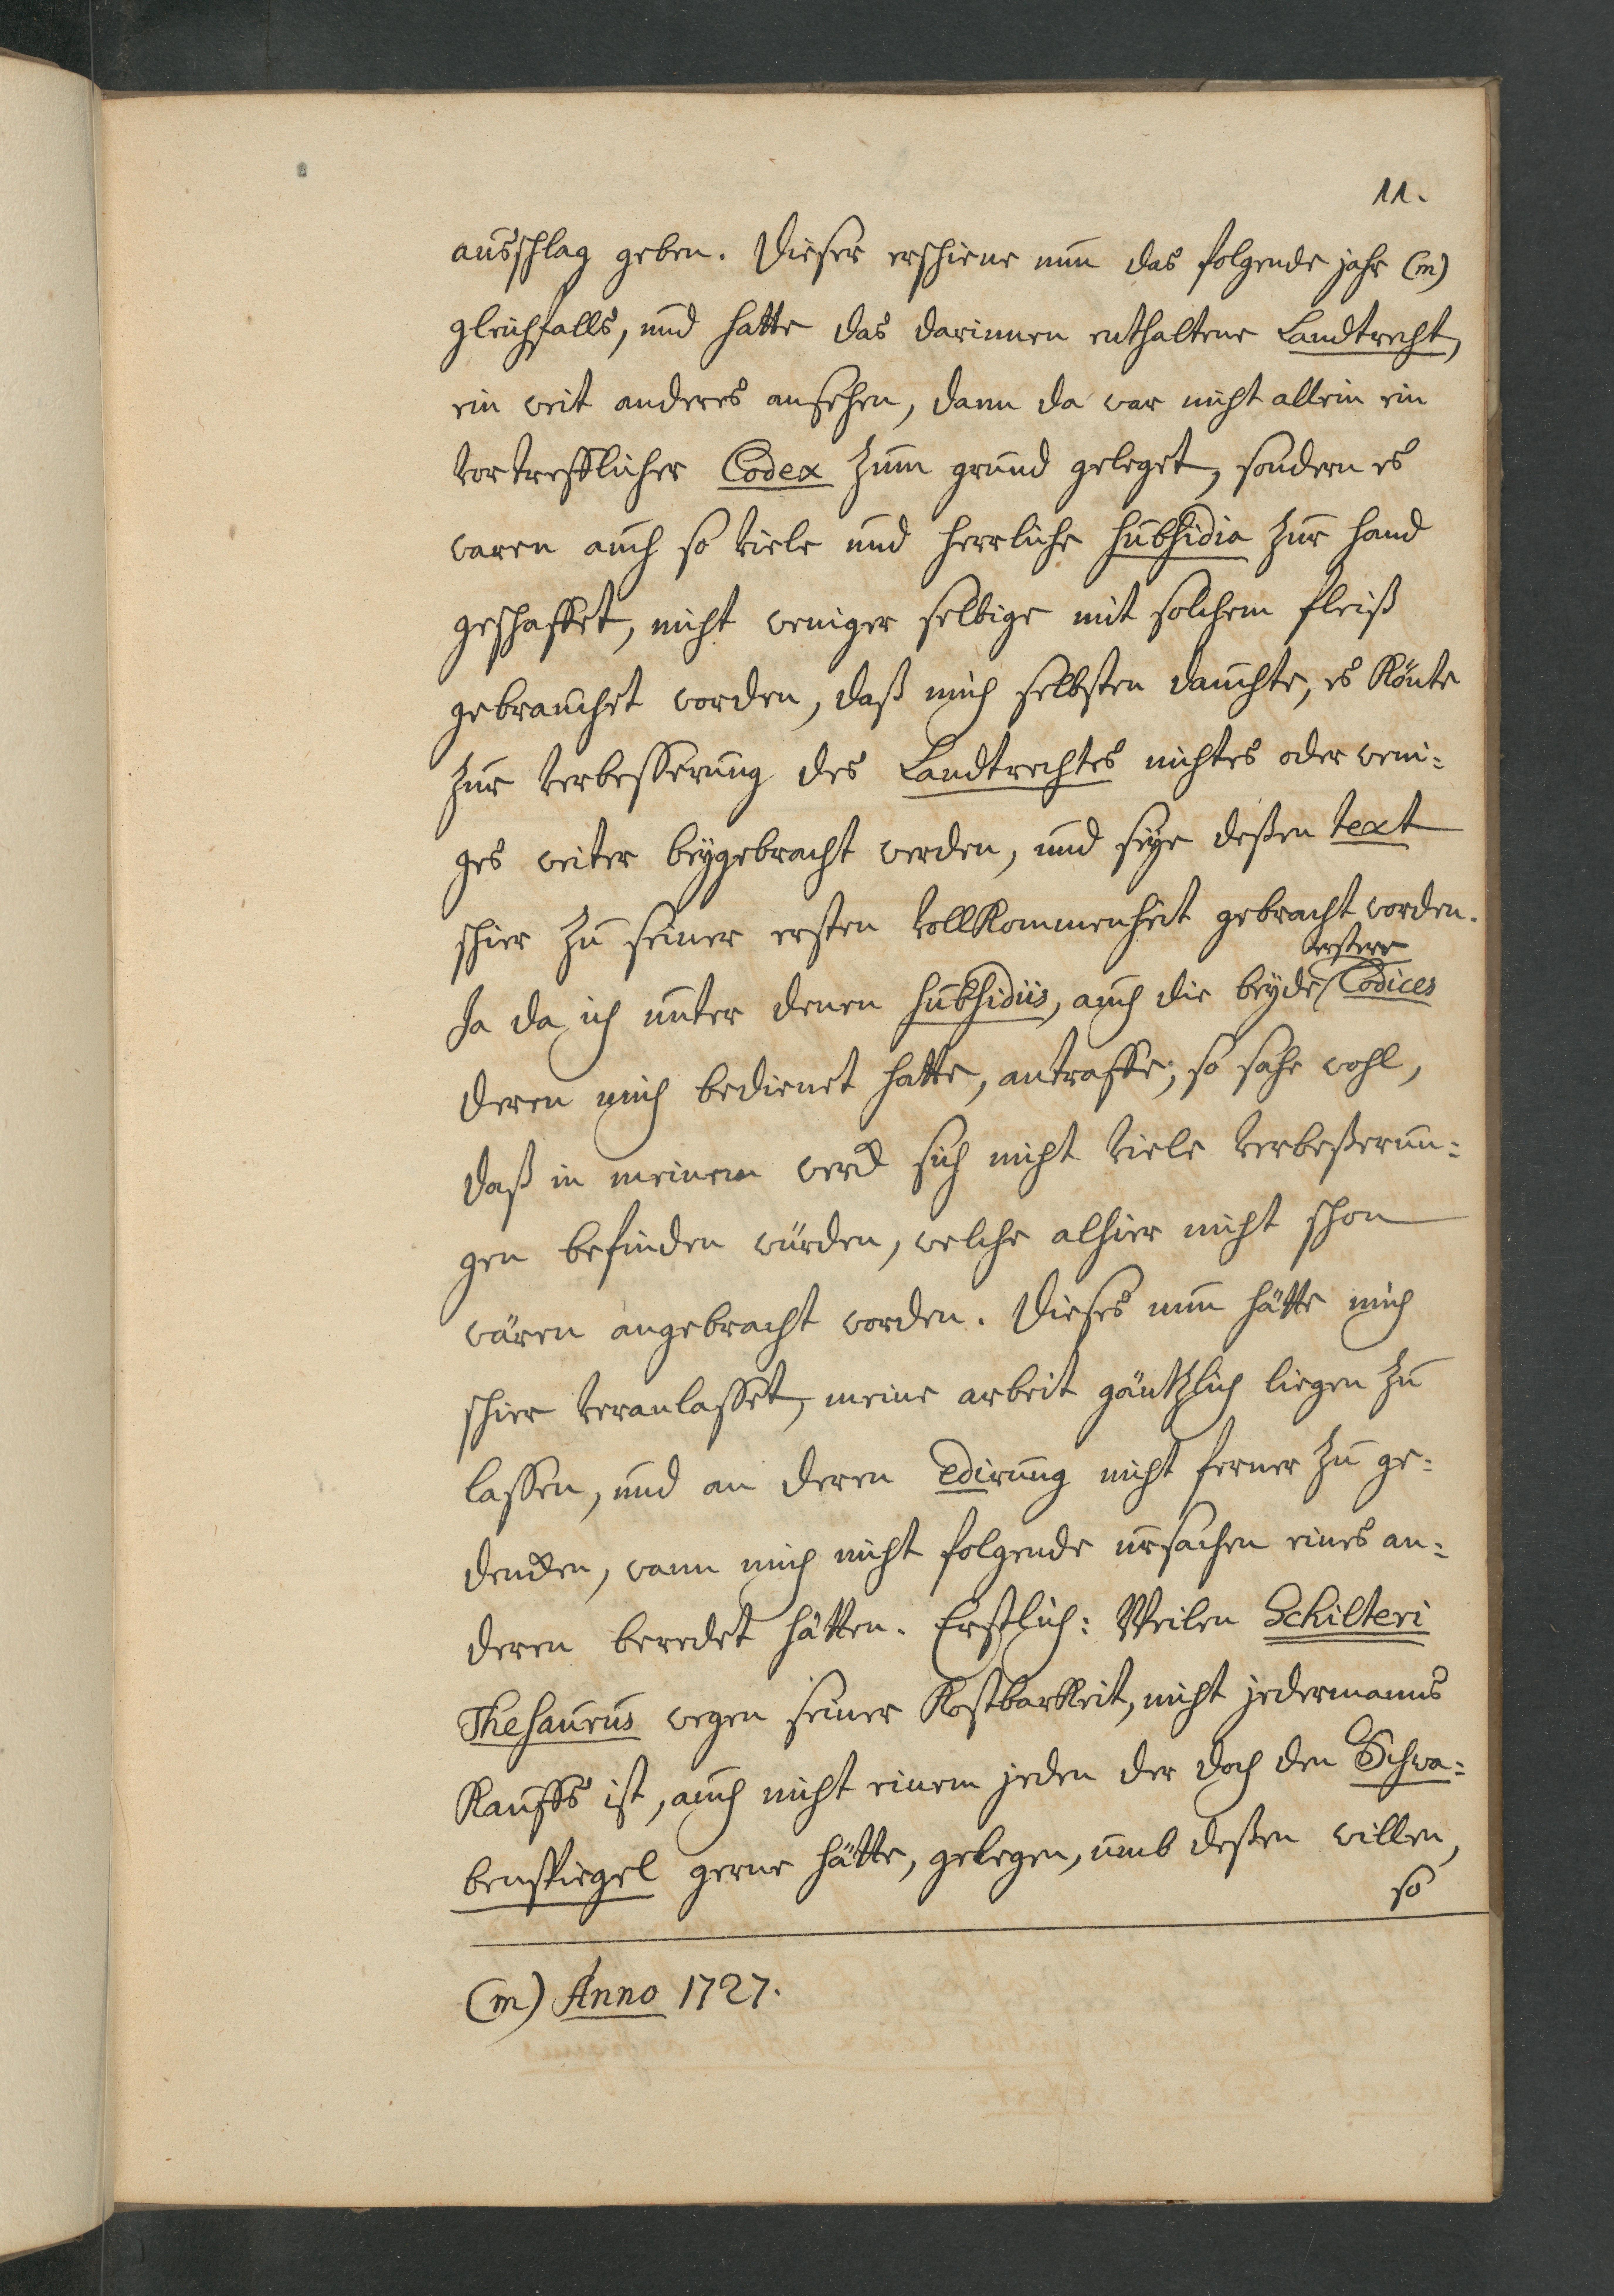 11.
ausschlag geben. Dieser erschiene nun das folgende jahr (m)
gleichfalls, und hatte das darinnen enthaltene Landtrecht,
ein weit anderes ansehen, dann da war nicht allein ein
vortrefflicher Codex zum grund geleget, sondern es
waren auch so viele und herrliche subsidia zur hand
geschaffet, nicht weniger selbige mit solchem fleiß
gebrauchet worden, daß mich selbsten dauchte, es könte
zur verbesserung des Landtrechtes nichtes oder weni=
ges weiter beygebracht werden, und seye deßen text
schier zu seiner ersten vollkommenheit gebracht worden.
erstere
Ja da ich unter denen subsidiis, auch die beyde Codices
deren mich bedienet hatte, antraffe; so sahe wohl,
daß in meinem werck sich nicht viele verbeßerun=
gen befinden würden, welche alhier nicht schon
wären angebracht worden. Dieses nun hätte mich
schier veranlasset, meine arbeit gäntzlich liegen zu
lassen, und an deren edirung nicht ferner zu ge=
dencken, wann mich nicht folgende ursachen eines an=
deren beredet hätten. Erstlich: Weilen Schilteri
Thesaurus wegen seiner Kostbarkeit, nicht jedermanns
Kauffs ist, auch nicht einem jeden der doch den Schwa=
benspiegel gerne hätte, gelegen, umb deßen willen,
so
(m) Anno 1727.